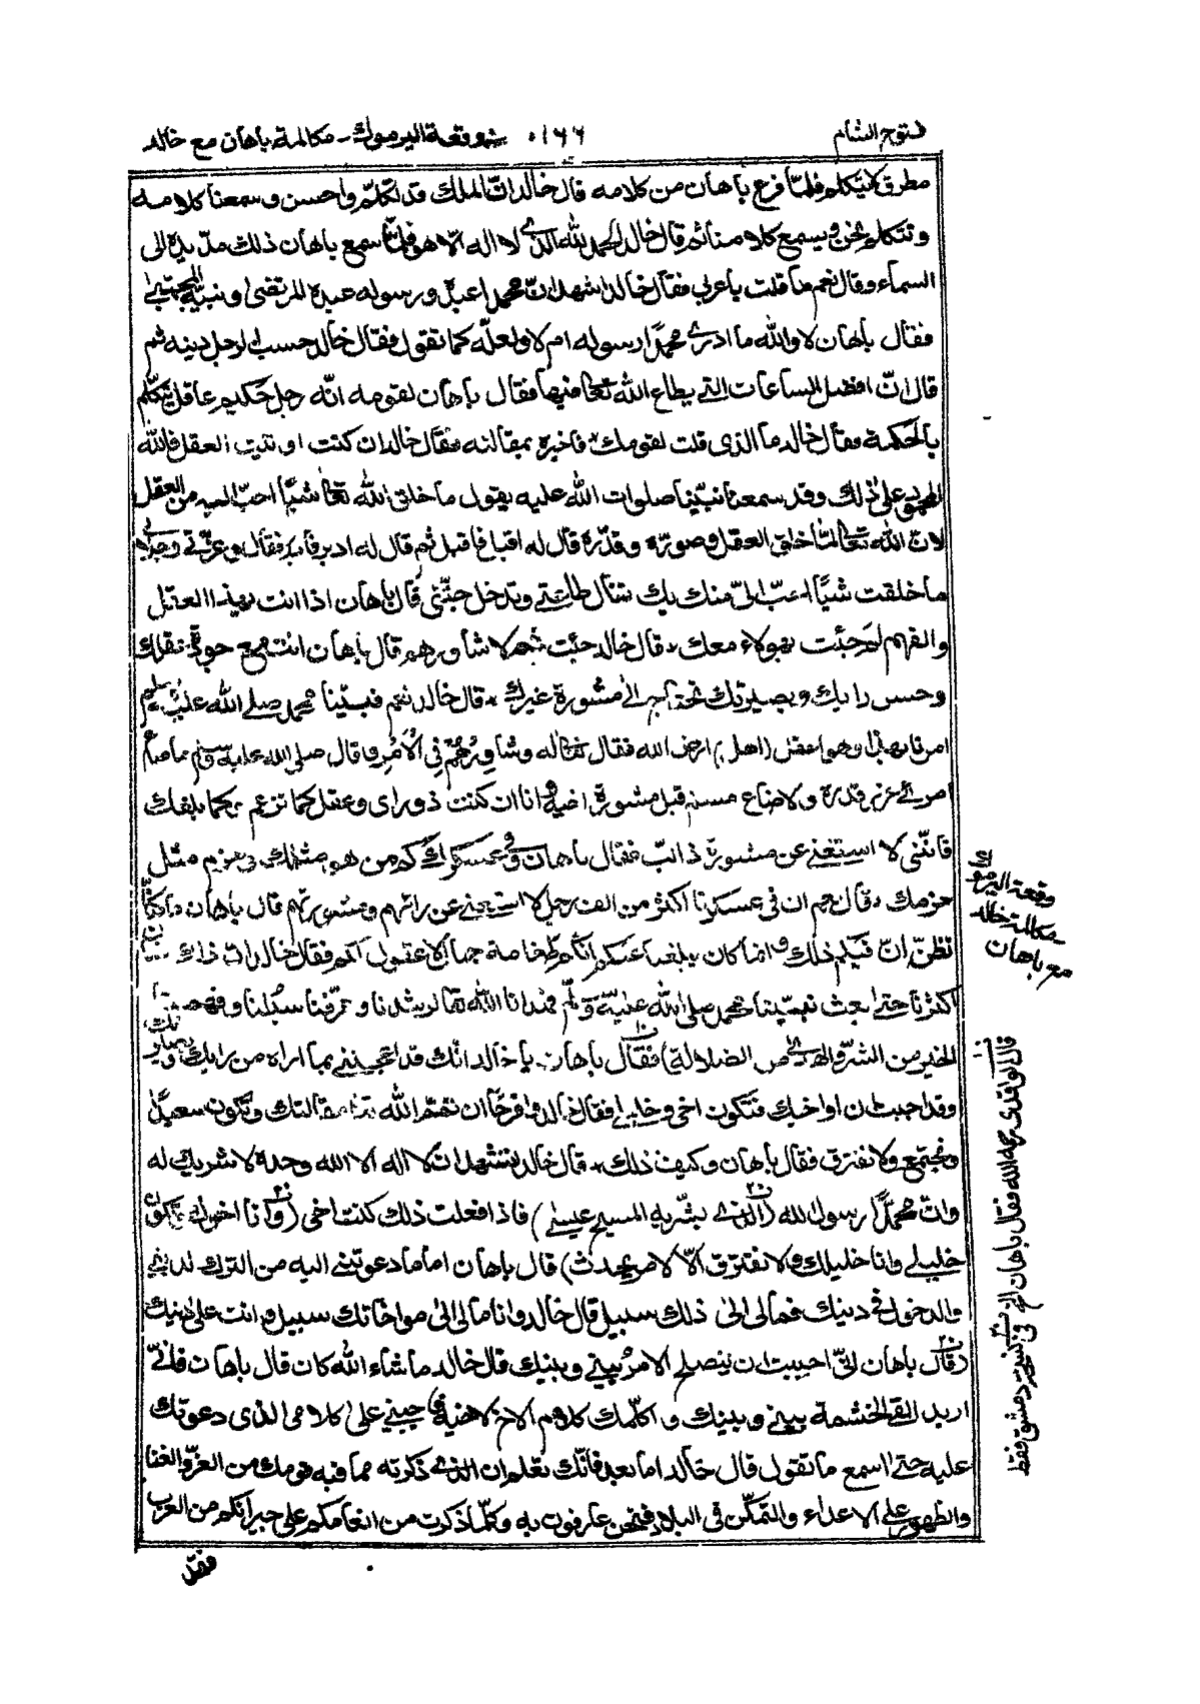 فتوح الشام
١٦٦
وقعة اليرموك - مكالمة باهان مع خالد
مطرق لا يتكلم فلما فرغ باهان من كلامه قال خالد ان الملك قد تكلم واحسن وسمعنا كلامه
ونتكلم نحن ويسمع كلامنا ثم قال خالد الحمد لله الذي لا اله الا هو فلما سمع باهان ذلك مد يده الى
السماء وقال نعم ما قلت يا عربي فقال خالد اشهد ان محمدا عبده ورسوله عبده المرتضى ونبيه المجتبى
فقال باهان لا والله ما ادري محمدًا رسوله ام لا ولعله كما تقول فقال خالد حسب الرجل دينه ثم
قال ان افضل الساعات التي يطاع الله تعا فيها فقال باهان لقومه انه رجل حكيم عاقل يتكلم
بالحكمة فقال خالد ما الذي قلت لقومك فاخبره بمقالته فقال خالد ان كنت اوتيت العقل فالله
المحمود على ذلك وقد سمعنا نبينا صلوات الله عليه يقول ما خلق الله تعا شيئًا احب اليه من العقل
لان الله تعا لما خلق العقل وصوره وقدره قال له اقبل فاقبل ثم قال له ادبر فادبر فقال وعزتي وجلالي
ما خلقت شيئًا احب اليّ منك بك تنال طاعتي وتدخل جنتي قال باهان اذا انت بهذا العقل
والفهم لم جئت بهؤلاء معك قال خالد جئت بهم لاشاورهم قال باهان انت مع جودة عقلك
وحسن رايك وبصيرتك تحتاج الى مشورة غيرك قال خالد نعم فنبينا محمد صلى الله عليه وسلم
امر ربه بهذا وهو افضل (اهل) ارض الله فقال تعاله وشاورهم في الأمر وقال صلى الله عليه وسلم ما ضاع
امرئ عرف قدره ولا ضاع مسلم قبل مشورة اخيه وانا ان كنت ذو راى وعقل كما تزعم وكما بلغك
فانني لا استغنى عن مشورة ذالب فقال باهان وفي عسكرك كم من هو مثلك وحزم مثل
حزمك قال نعم ان في عسكرنا اكثر من الف رجل لا استغنى عن رائهم ومشورتهم قال باهان ما كنا
نظن ان فيكم ذلك وانما كان يبلغنا عنكم انكم طماعة جهال لا عقول لكم فقال خالد ان ذاك
اكثرنا حتى بعث نبينا محمد صلى الله عليه وسلم فهدانا الله تعا لرشدنا وعرفنا سبلنا
الخير من الشر والهدى من الضلالة) فقال باهان يا خالد انك قد اعجبتنى بما اراه من رايك
وقد احببت ان اواخيك فتكون اخى وخليلي فقال خالد وافرحا ان تمم الله تعا مقالتك وتكون سعيدًا
ونجتمع ولا نفترق فقال باهان وكيف ذلك قال خالد تشهد ان لا اله الا الله وحده لا شريك له
وان محمدًا رسول الله (الذي بشر به المسيح عيسى) فاذا فعلت ذلك كنت اخى (وانا اخوك وتكون
خليلي وانا خليلك ولا نفترق الا لامر يحدث) قال باهان اما ما دعوتنى اليه من الترك لديني
والدخول في دينك فمالى الى ذلك سبيل قال خالد وانا مالى الى مواخاتك سبيل وانت على دينك
(قال باهان انى احببت ان ينصلح الامر بيني وبينك قال خالد ما شاء الله كان قال باهان فاني
اريد القى الحشمة بيني وبينك واكلمك كلام الاخ لاخيه فاجبني على كلامى الذى دعوتك
عليه حتى اسمع ما تقول قال خالد اما بعد فانك تعلم ان الذي ذكرته مما فيه قومك من العز والغنا
والظهور على الاعداء والتمكن في البلاد فنحن عارفون به وكلما ذكرت من انعامكم على جيرانكم من العرب
فقد
وقعة اليرموك
مكالمة خالد
مع باهان
قال الواقدى رحمه الله فقال باهان الخ في نسخة دمشق فقط